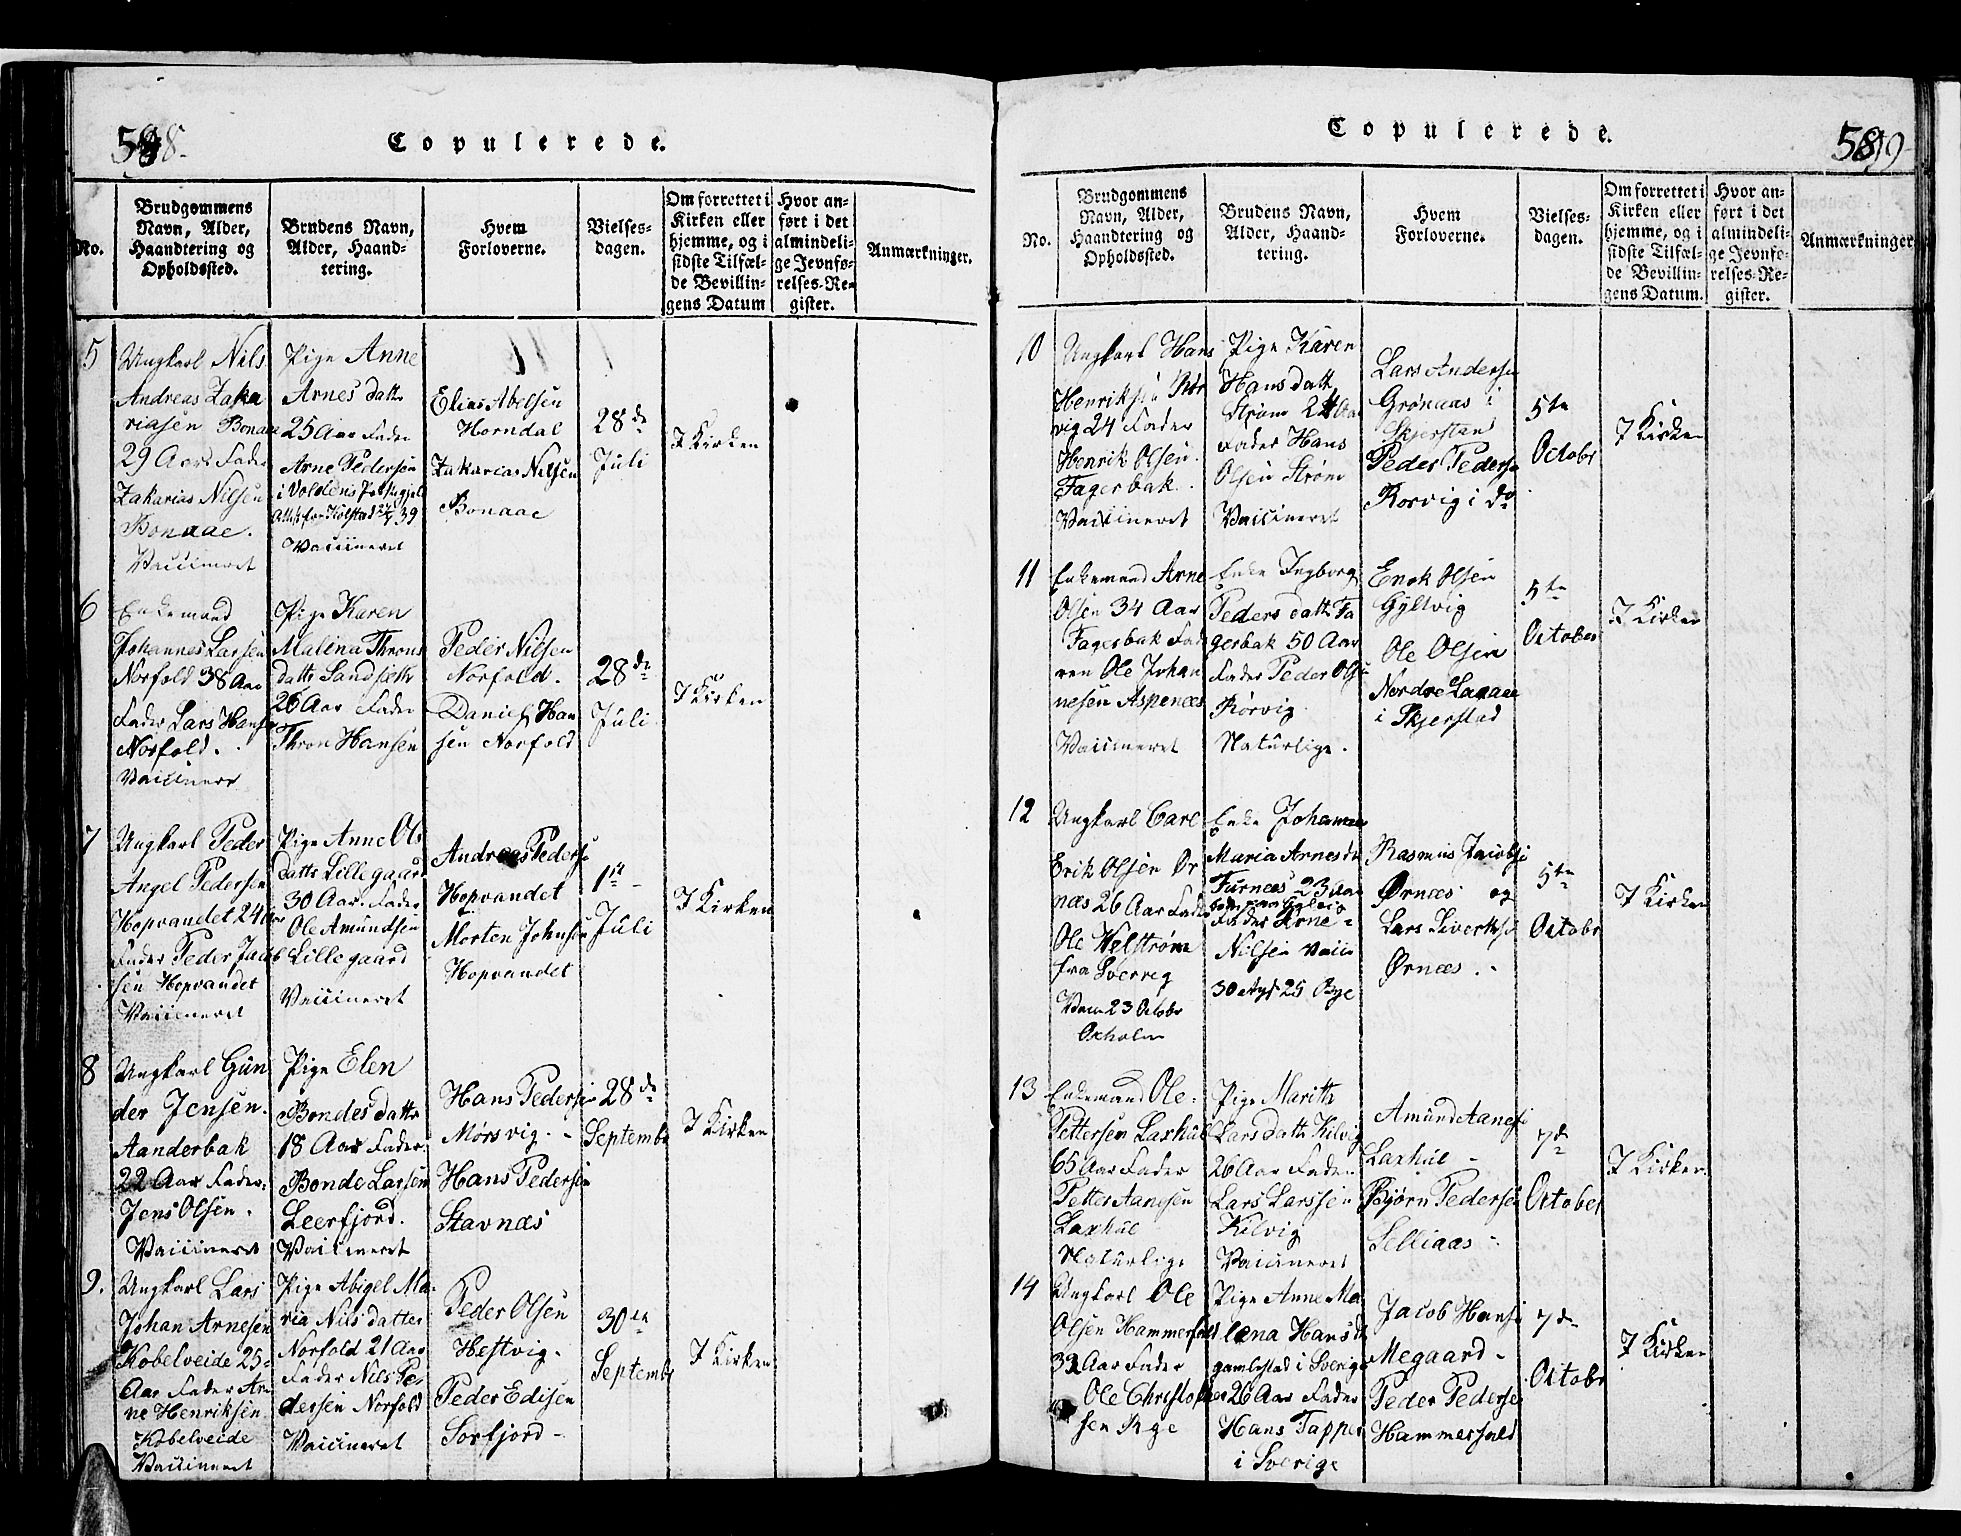 Copulerede.
No.
Brudgommens
Navn, Alder,
Haandtering og
Opholdssted.
Brudens Navn,
Alder, Haand-
tering.
Hvem
Forloverne.
Vielses-
dagen.
Om forrettet i
Kirken eller
hjemme, og i
sidste Tilfæl-
de Bevillin-
gens Datum
Hvor an-
ført i det
almindeli-
ge Jevnfø-
relses-Re-
gister.
Anmærkninger.
5
Ungkarl Nils
Andreas Zaka
riasen Bonaae
29 Aar Fader
Zakarias Nilsen
Bonaae.
Vaccineret
Pige Anne
Arnes datt
25 Aar Fader
Arne Pedersen
i Voldens
Vaccineret
Elias Abelsen
Horndal
Zakarias Nilsen
Bonaae
28de
Juli
I Kirken
6
Enkemand
Johannes Larsen
Norfold 38 Aar
Fader Lars Hansen
Norfold.
Pige Karen
Malena Throns
datts Landsæth
26 Aar Fader
Thron Hansen
Peder Nilsen
Norfold.
Daniel Han
sen Norfold
28de
Juli
I Kirken
7
Ungkarl Peder
Angel Pedersen
Hopvandet 24 Aar
Fader Peder Jacob
sen Hopvandet
Vaccineret
Pige Anne Ols
datts Lillegaard
30 Aar. Fader
Ole Amundsen
Lillegaard
Vaccineret
Andreas Peders
Hopvandet
Morten Johnsen
Hopvandet
1st
Juli
I Kirken
8
Ungkarl Gun
der Jensen.
Aanderbak
22 Aar Fader
Jens Olsen.
Vaccineret
Pige Elen
Bondes datts
18 Aar Fader
Bonde Larsen
Leerfjord.
Vaccineret
Hans Pedersen
Mørsvig.
Hans Pedersen
Stavnæs
28de
Septembr
I Kirken
9.
Ungkarl Lars
Johan Arnesen
Kobelveide 25
Aar Fader Ar
ne Henriksen
Kobelveide
Vaccineret
Pige Abigel Ma-
ria Nils datter
Norfold 21 Aar
Fader Nils Pe-
dersen Norfold
Vaccineret
Peder Olsen
Hestvig.
Peder Edisen
Sorfjord
30te
Septembr
I Kirken
Copulerede.
No.
Brudgommens
Navn, Alder,
Haandtering og
Opholdssted.
Brudens Navn,
Alder, Haand-
tering.
Hvem
Forloverne.
Vielses-
dagen.
Om forrettet i
Kirken eller
hjemme, og i
sidste Tilfæl-
de Bevillin-
gens Datum.
Hvor an-
ført i det
almindeli-
ge Jevnfø-
relses-Re-
gister.
Anmærkninger
10
Ungkarl Hans
Henriksen Rør
vig 24 Fader
Henrik Olsen
Fagerbak.
Vaccineret
Pige Karen
Hans datt
Strøm 24 Aar
Fader Hans
Olsen Strøm
Vaccineret
Lars Andersen
Grønaas i
Skjerstad
Peder Pedersen
Rorvig i do
5te
Octobr
I Kirken
11
Enkemand Arne
Olsen 34 Aar
Fagerbak Fad
eren Ole Johan
nesen Aspenæs
Vaccineret
Enke Ingborg
Peders datt Fa
gerbak 50 Aar
Fader Peder Olse
Rørvig
Naturlige.
Enok Olsen
Gyltvig
Ole Olsen
Nordre
i Skjerstad
5te
October
I Kirken
12
Ungkarl Carl
Erik Olsen Ør
næs 26 Aar Fader
Ole Welstrøm
fra Sverreg
23 Octobr
Enke Johanna
Maria Arnesdt
Furnæs 23 Aar
Fader Arne
Nilsen
Rasmus Jacobse
Ørnæs og
Lars Sivertse
Ørnæs.
5te
Octobr
I Kirken
13
Enkemand Ole
Pettersen Laxhue
65 Aar Fader
Petter Aanesen
Laxhue
Naturlige
Pige Marith
Lars datt Kilvig
26 Aar Fader
Lars Larssen
Kilvig
Vaccineret
Amund Aanese
Laxhue
Bjørn Pedersen
Selliaas
7de
October
I Kirken
14
Ungkarl Ole
Olsen Hammerfald
32 Aar Fader
Ole Christoph
sen Rge
Pige Anne Ma
lena Hans dt
gamlestad i Sverige
26 Aar Fader
Hans Tapper
i Sverige
Jacob Hanse
Megaard
Peder Pederse
Hammerfald
7de
Octobr
I Kirken